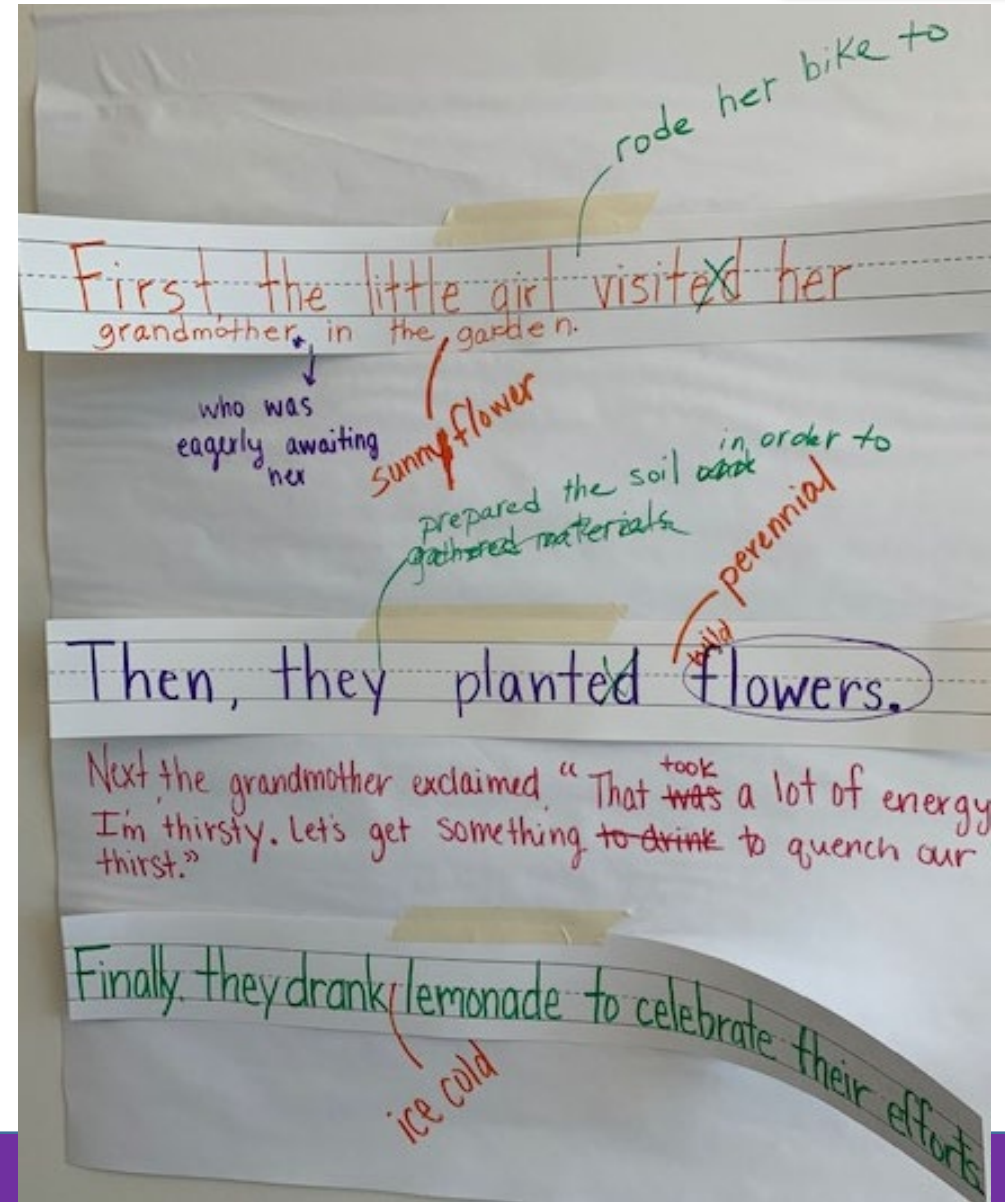 rode her bike to
First, the little girl visited her
grandmother, in the garden.
who was
eagerly awaiting
her
sunnyflower
in order to
prepared the soil and
gathered materials
perennial
wild
Then, they planted flowers.
took
Next, the grandmother exclaimed, "That was a lot of energy
I'm thirsty. Let's get something to drink to quench our
thirst."
Finally, they drank lemonade to celebrate their efforts
ice cold